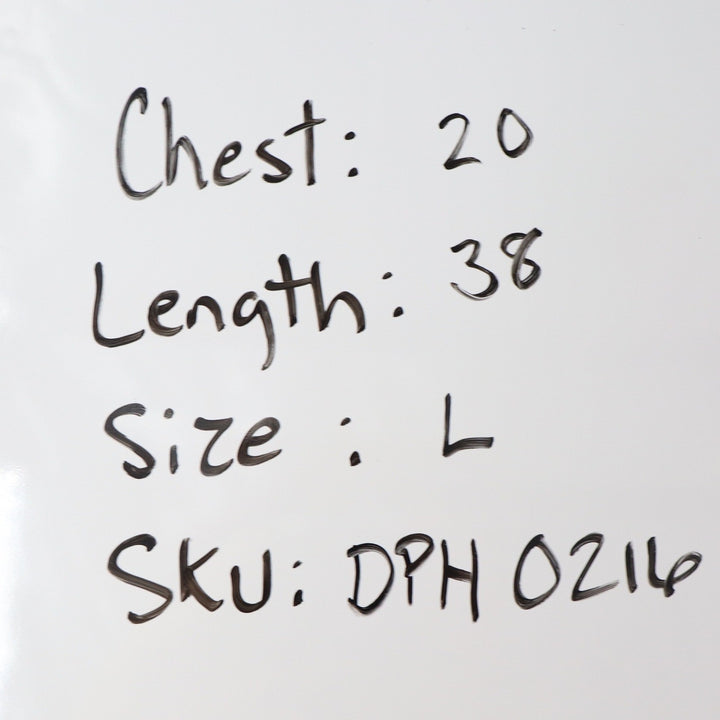 Chest: 20
Length: 38
Size: L
SKU: DPH 0216